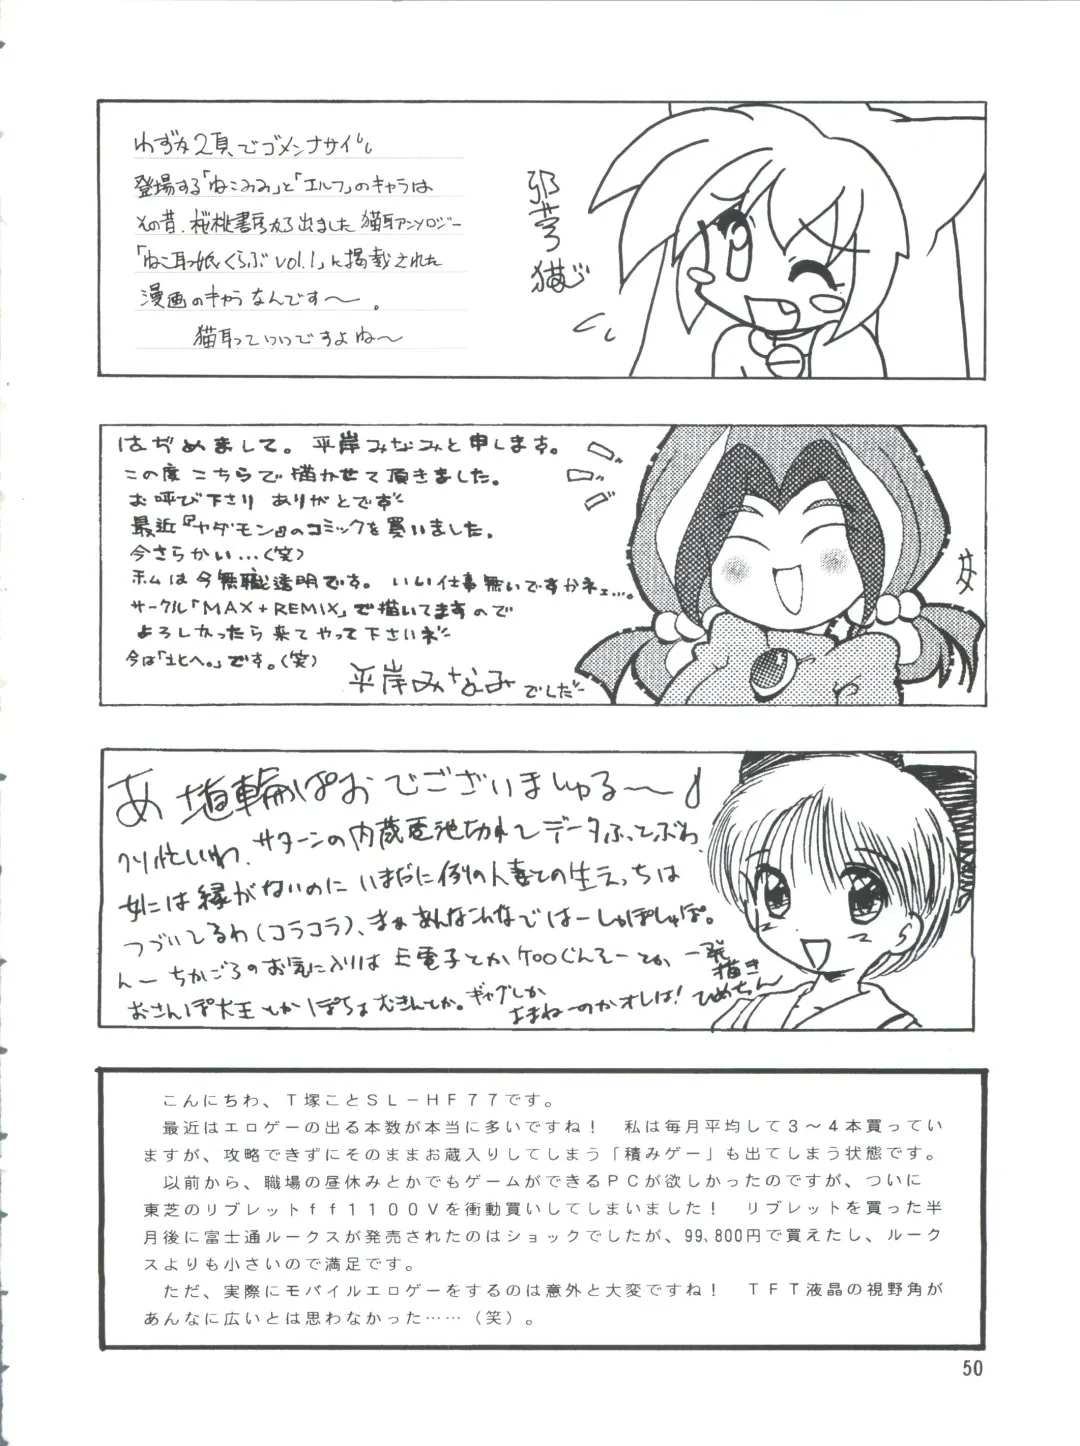 わずか2頁でゴメンナサイ
登場する「ねこみみ」と「エルフ」のキャラは
その昔、桜桃書房から出ました猫耳アンソロジー
「ねこ耳っ娘くらぶ vol.1」に掲載された
漫画のキャラなんです〜。
猫耳っていいですよね〜
猫
はぢめまして。平岸みなみと申します。
この度こちらで描かせて頂きました。
お呼び下さり ありがとです
最近『ヤダモン』のコミックを買いました。
今さらかい…(笑)
ホムは今無職透明です。いい仕事無いですかネェ…。
サークル「MAX+REMIX」で描いてますので
よろしかったら来てやって下さいネ
今は「北へ。」です。(笑)
平岸みなみでした
あ 埴輪ぱおでございましゅる〜♪
クソ忙しいわ、サターンの内蔵電池切れてデータふっとぶわ、
女には縁がないのにいまだに例の人妻との生えっちは
つづいてるわ(コラコラ)、まぁあんなこんなではーしゅぽしゅぽ。
んーちかごろのお気に入りは上電子とかケロロぐんそーとか
おさんぽ大王とかぽちょむきんとか。ギャグしか
よまねーのかオレは!
一発
描き
ひめちん
こんにちわ、T塚ことSL−HF77です。
最近はエロゲーの出る本数が本当に多いですね! 私は毎月平均して3〜4本買ってい
ますが、攻略できずにそのままお蔵入りしてしまう「積みゲー」も出てしまう状態です。
以前から、職場の昼休みとかでもゲームができるPCが欲しかったのですが、ついに
東芝のリブレットff1100Vを衝動買いしてしまいました! リブレットを買った半
月後に富士通ルークスが発売されたのはショックでしたが、99,800円で買えたし、ルーク
スよりも小さいので満足です。
ただ、実際にモバイルエロゲーをするのは意外と大変ですね! TFT液晶の視野角が
あんなに広いとは思わなかった……(笑)。
50